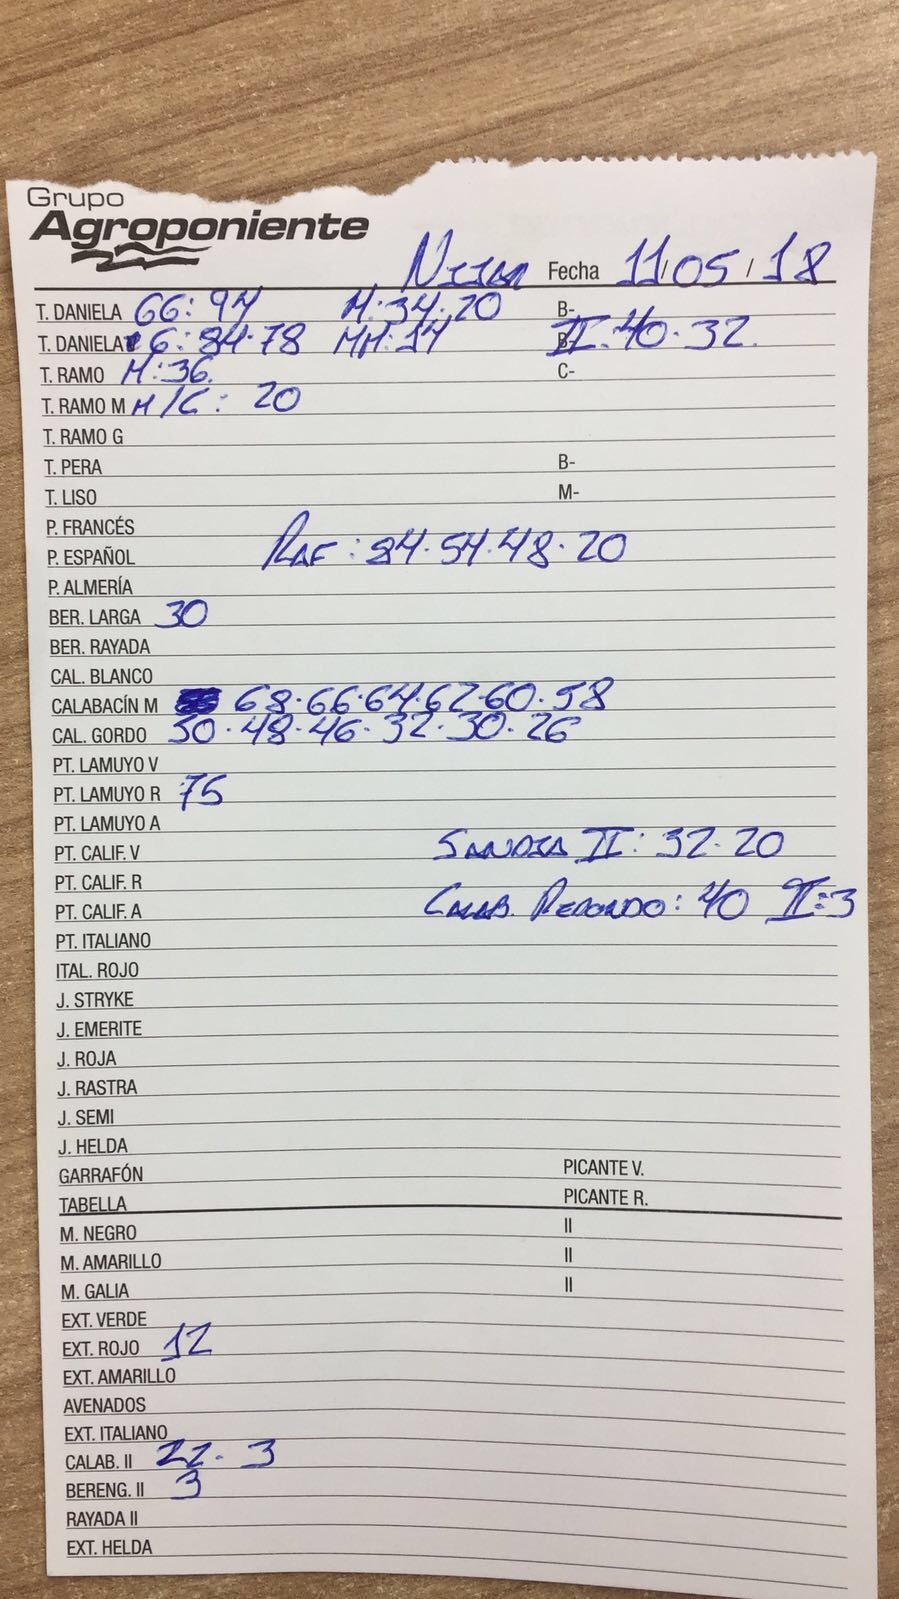 Grupo
Agroponiente
Fecha 11/05/18
T. DANELA GG: 94 M: 34-20 B-
T. DANELA G: 84-78 MM: 14 B- II: 40-32.
T. RAMO M: 36. C-
T. RAMO M M/C: 20
T. RAMO G
T. PERA B-
T. LISO M-
P. FRANCÉS
P. ESPAÑOL RAF: 84-54-48-20
P. ALMERÍA
BER. LARGA 30
BER. RAYADA
CAL. BLANCO
CALABACÍN M 68-66-64-62-60-58
CAL. GORDO 50-48-46-32-30-26
PT. LAMUYO V
PT. LAMUYO R 75
PT. LAMUYO A
PT. CALIF. V SANDIA II: 32-20
PT. CALIF. R
PT. CALIF. A CALAB. REDONDO: 40 II: 3
PT. ITALIANO
ITAL. ROJO
J. STRYKE
J. EMERITE
J. ROJA
J. RASTRA
J. SEMI
J. HELDA
GARRAFÓN PICANTE V.
TABELLA PICANTE R.
M. NEGRO II
M. AMARILLO II
M. GALIA II
EXT. VERDE
EXT. ROJO 12
EXT. AMARILLO
AVENADOS
EXT. ITALIANO
CALAB. II 22-3
BERENG. II 3
RAYADA II
EXT. HELDA